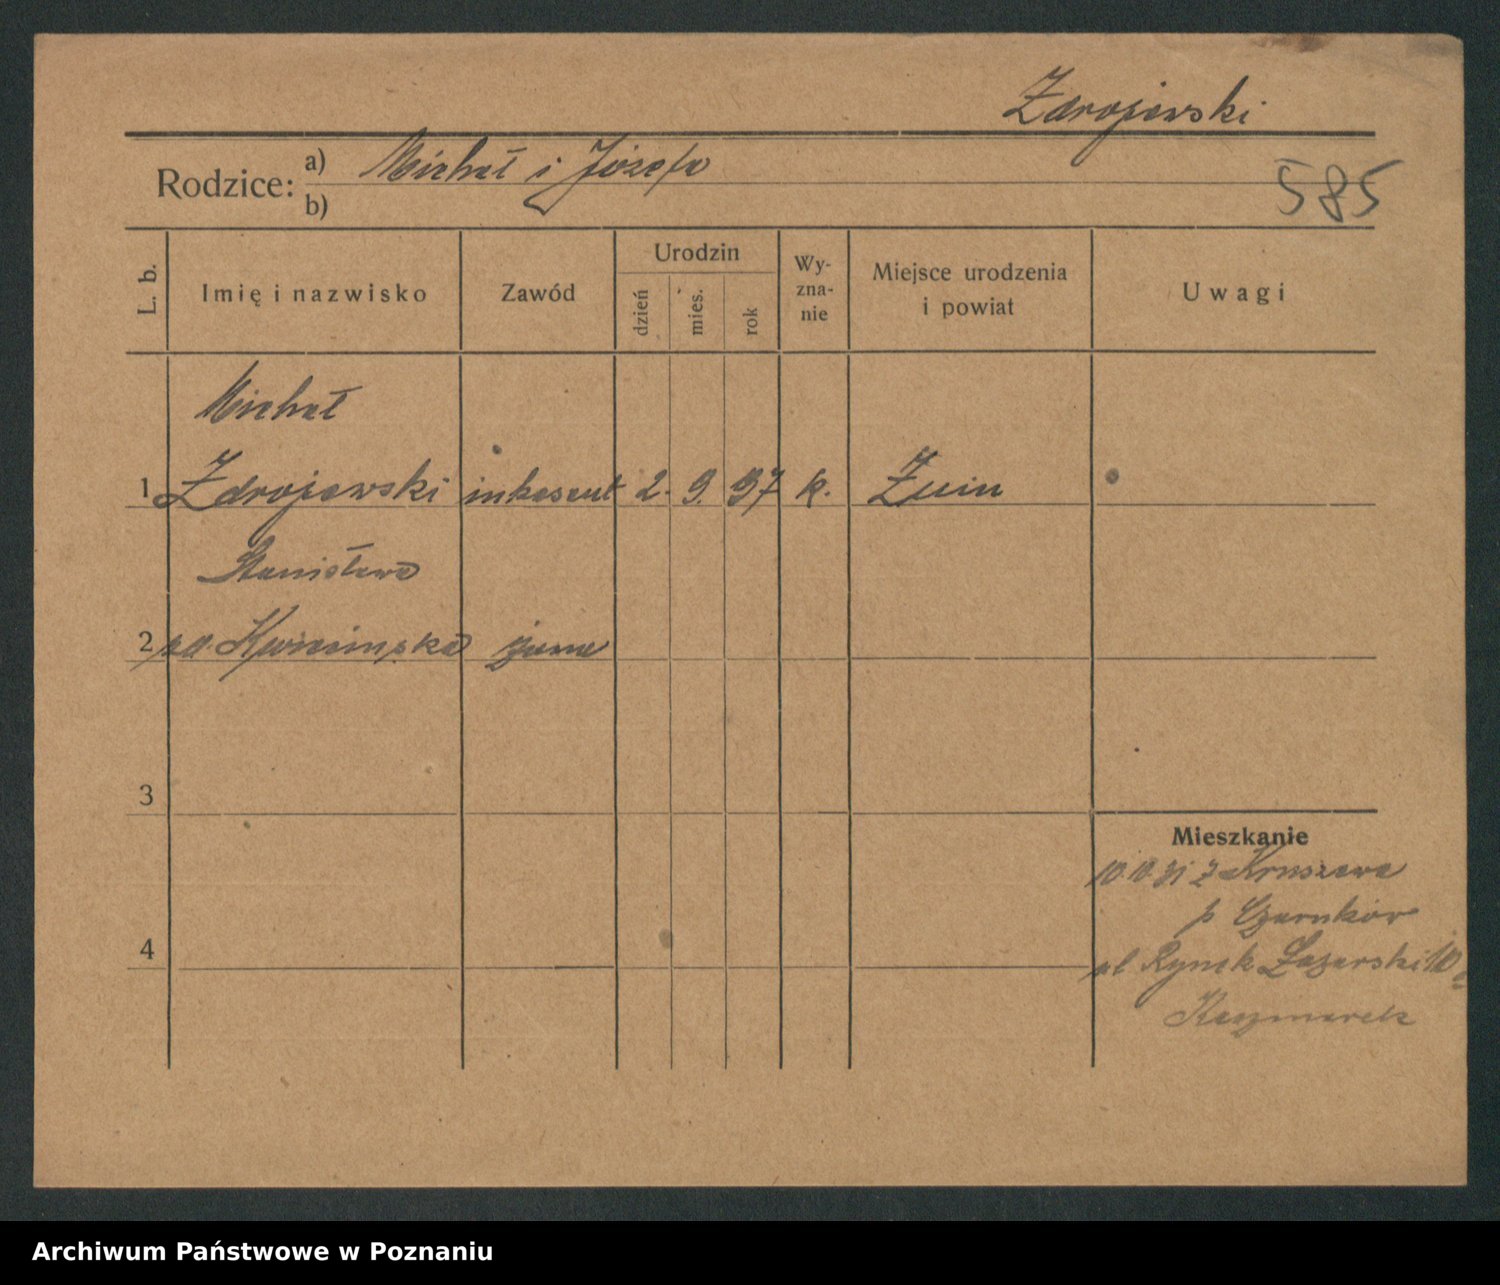 Zdrojewski
Rodzice: a) Michał i Józefa
b)
585
L. b. Imię i nazwisko Zawód Urodzin dzień mies. rok Wy-zna-nie Miejsce urodzenia i powiat Uwagi
Michał
1 Zdrojewski inkasent 2. 9. 97 k. Żnin
Stanisława
2 zd. Kwiecińska żona
3
Mieszkanie
10.10.31 z Kruszewa
p Czarnków
4
ul Rynek Łazarski 10
Kaczmarek
Archiwum Państwowe w Poznaniu